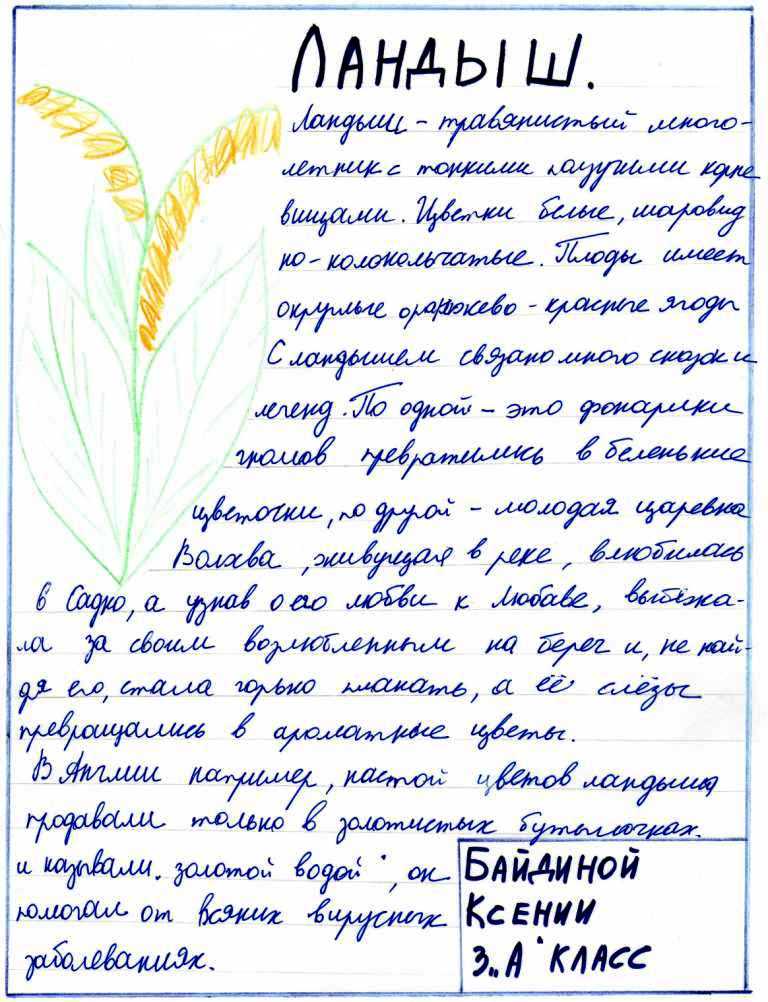 Ландыш.
Ландыш - травянистый много-
летник с тонкими ползучими корне
вищами. Цветки белые, шаровид
но-колокольчатые. Плоды имеет
округлые оранжево - красные ягоды
С ландышем связано много сказок и
легенд. По одной - это фонарики
гномов превратились в беленькие
цветочки, по другой - молодая царевна
Волхва, живущая в реке, влюбилась
в Садко, а узнав о его любви к Любаве, выбежа-
ла за своим возлюбленным на берег и, не най-
дя его, стала горько плакать, а её слёзы
превращались в ароматные цветы.
В Англии например, настой цветов ландыша
продавали только в золотистых бутылочках.
и называли „золотой водой", он
помогал от всяких вирусных
заболеваниях.
Байдиной
Ксении
3„А" класс